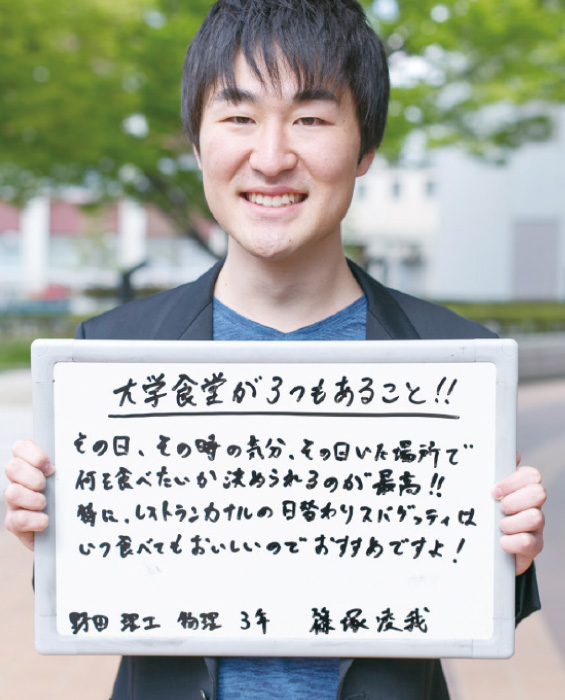 大学食堂が3つもあること!!
その日、その時の気分、その日いた場所で
何を食べたいか決められるのが最高!!
特に、レストランカナルの日替わりスパゲッティは
いつ食べてもおいしいのでおすすめですよ!
野田 理工 物理 3年 篠塚凌我